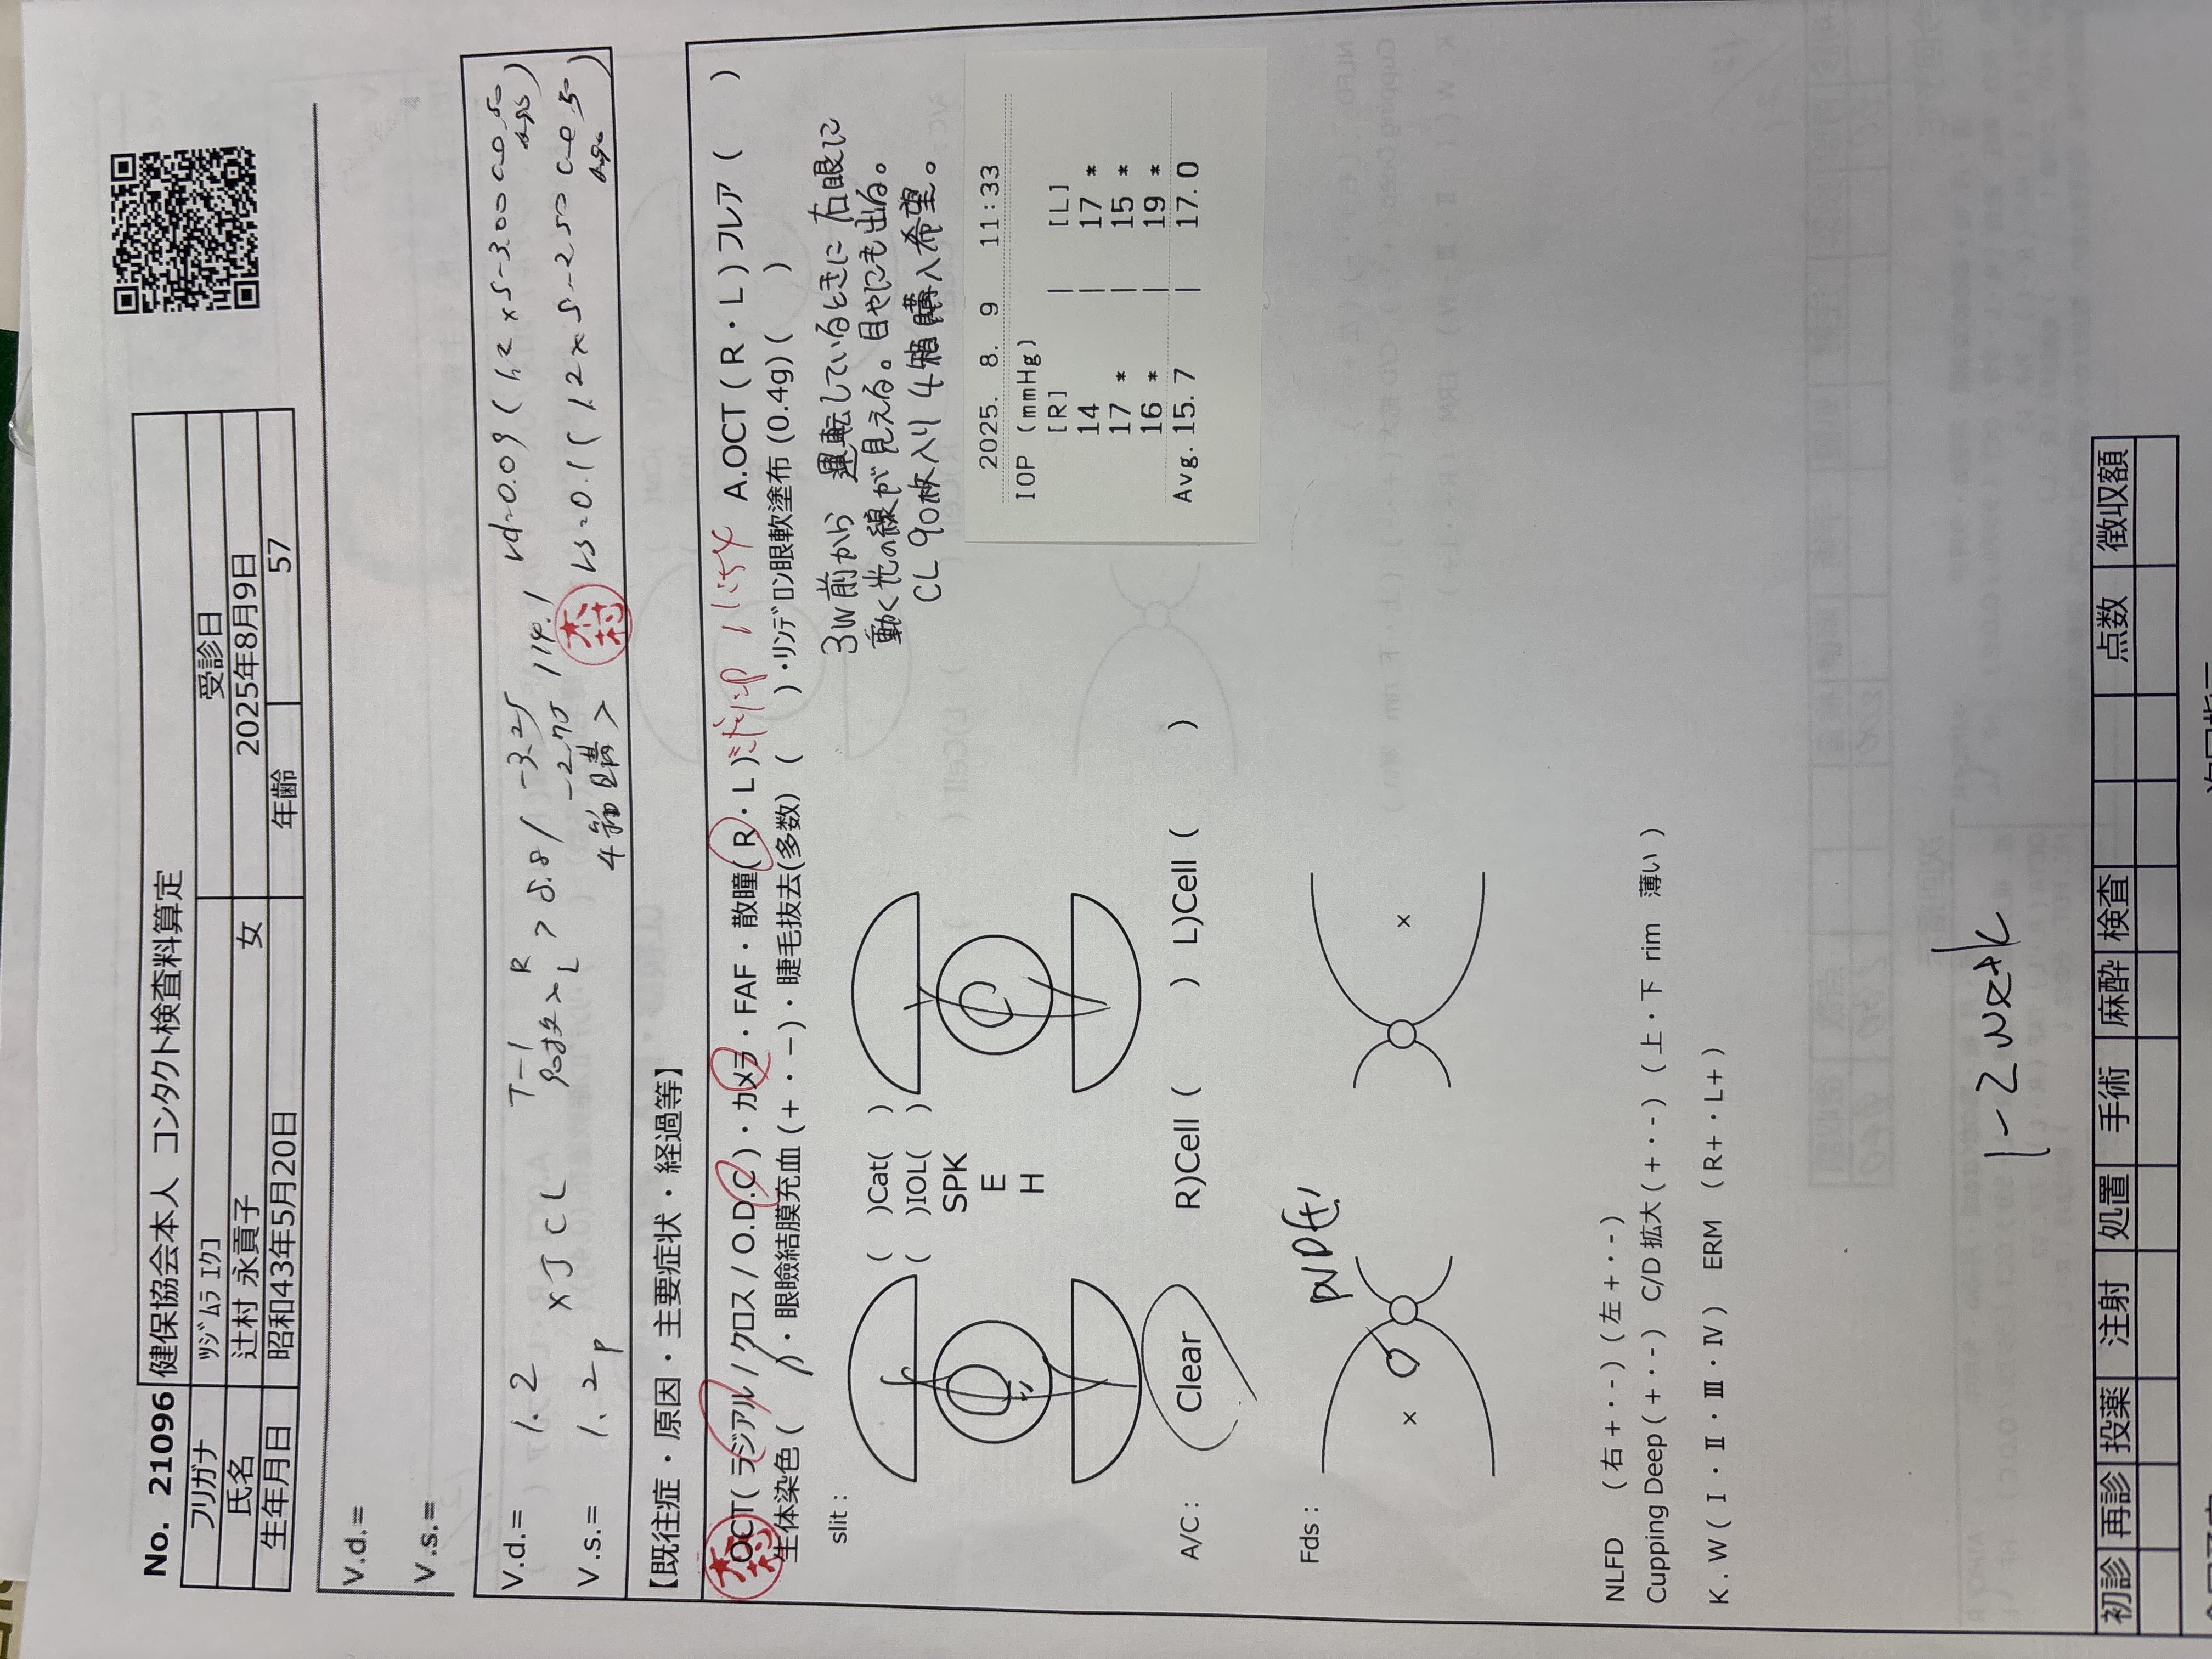 No. 21096 健保協会本人 コンタクト検査料算定
フリガナ ﾂｼﾞﾑﾗ ｴｸｺ 受診日
氏名 辻村 永貢子 女 2025年8月9日
生年月日 昭和43年5月20日 年齢 57
V.d.=
V.s.=
V.d.= 1.2 T-1 R -3.25 vd=0.09 ( 1.2 x S-3.00 C-0.50 A90 )
× J CL 90枚入 > 8.8 / 14.1
L -2.75
V.s.= 1.2p 4箱購入 木村 vs=0.1 ( 1.2 x S-2.50 C-0.50 A90 )
【既往症・原因・主要症状・経過等】
木村
OCT( ラジアル / クロス / O.D.C )・カメラ・FAF・散瞳( R・L ) 11:54 A.OCT ( R・L ) フレア ( )
生体染色 ( )・眼瞼結膜充血 (+・−)・睫毛抜去(多数) ( )・ﾘﾝﾃﾞﾛﾝ眼軟塗布 (0.4g) ( )
slit :
( )Cat( )
( )IOL( )
SPK
E
H
3W前から 運転しているときに 右眼に
動く光の線が見える。目やにも出る。
CL 90枚入り 4箱購入希望。
2025. 8. 9 11:33
IOP (mmHg)
[R] | [L]
14 | 17 *
17 * | 15 *
16 * | 19 *
Avg. 15.7 | 17.0
A/C : Clear R)Cell ( ) L)Cell ( )
Fds : PVD(+)
× ×
NLFD (右 +・-) (左 +・-)
Cupping Deep ( +・- ) C/D 拡大 ( +・- ) ( 上・下 rim 薄い )
K . W ( Ⅰ・Ⅱ・Ⅲ・Ⅳ ) ERM ( R+・L+ )
1-2 week
初診 再診 投薬 注射 処置 手術 麻酔 検査 点数 徴収額